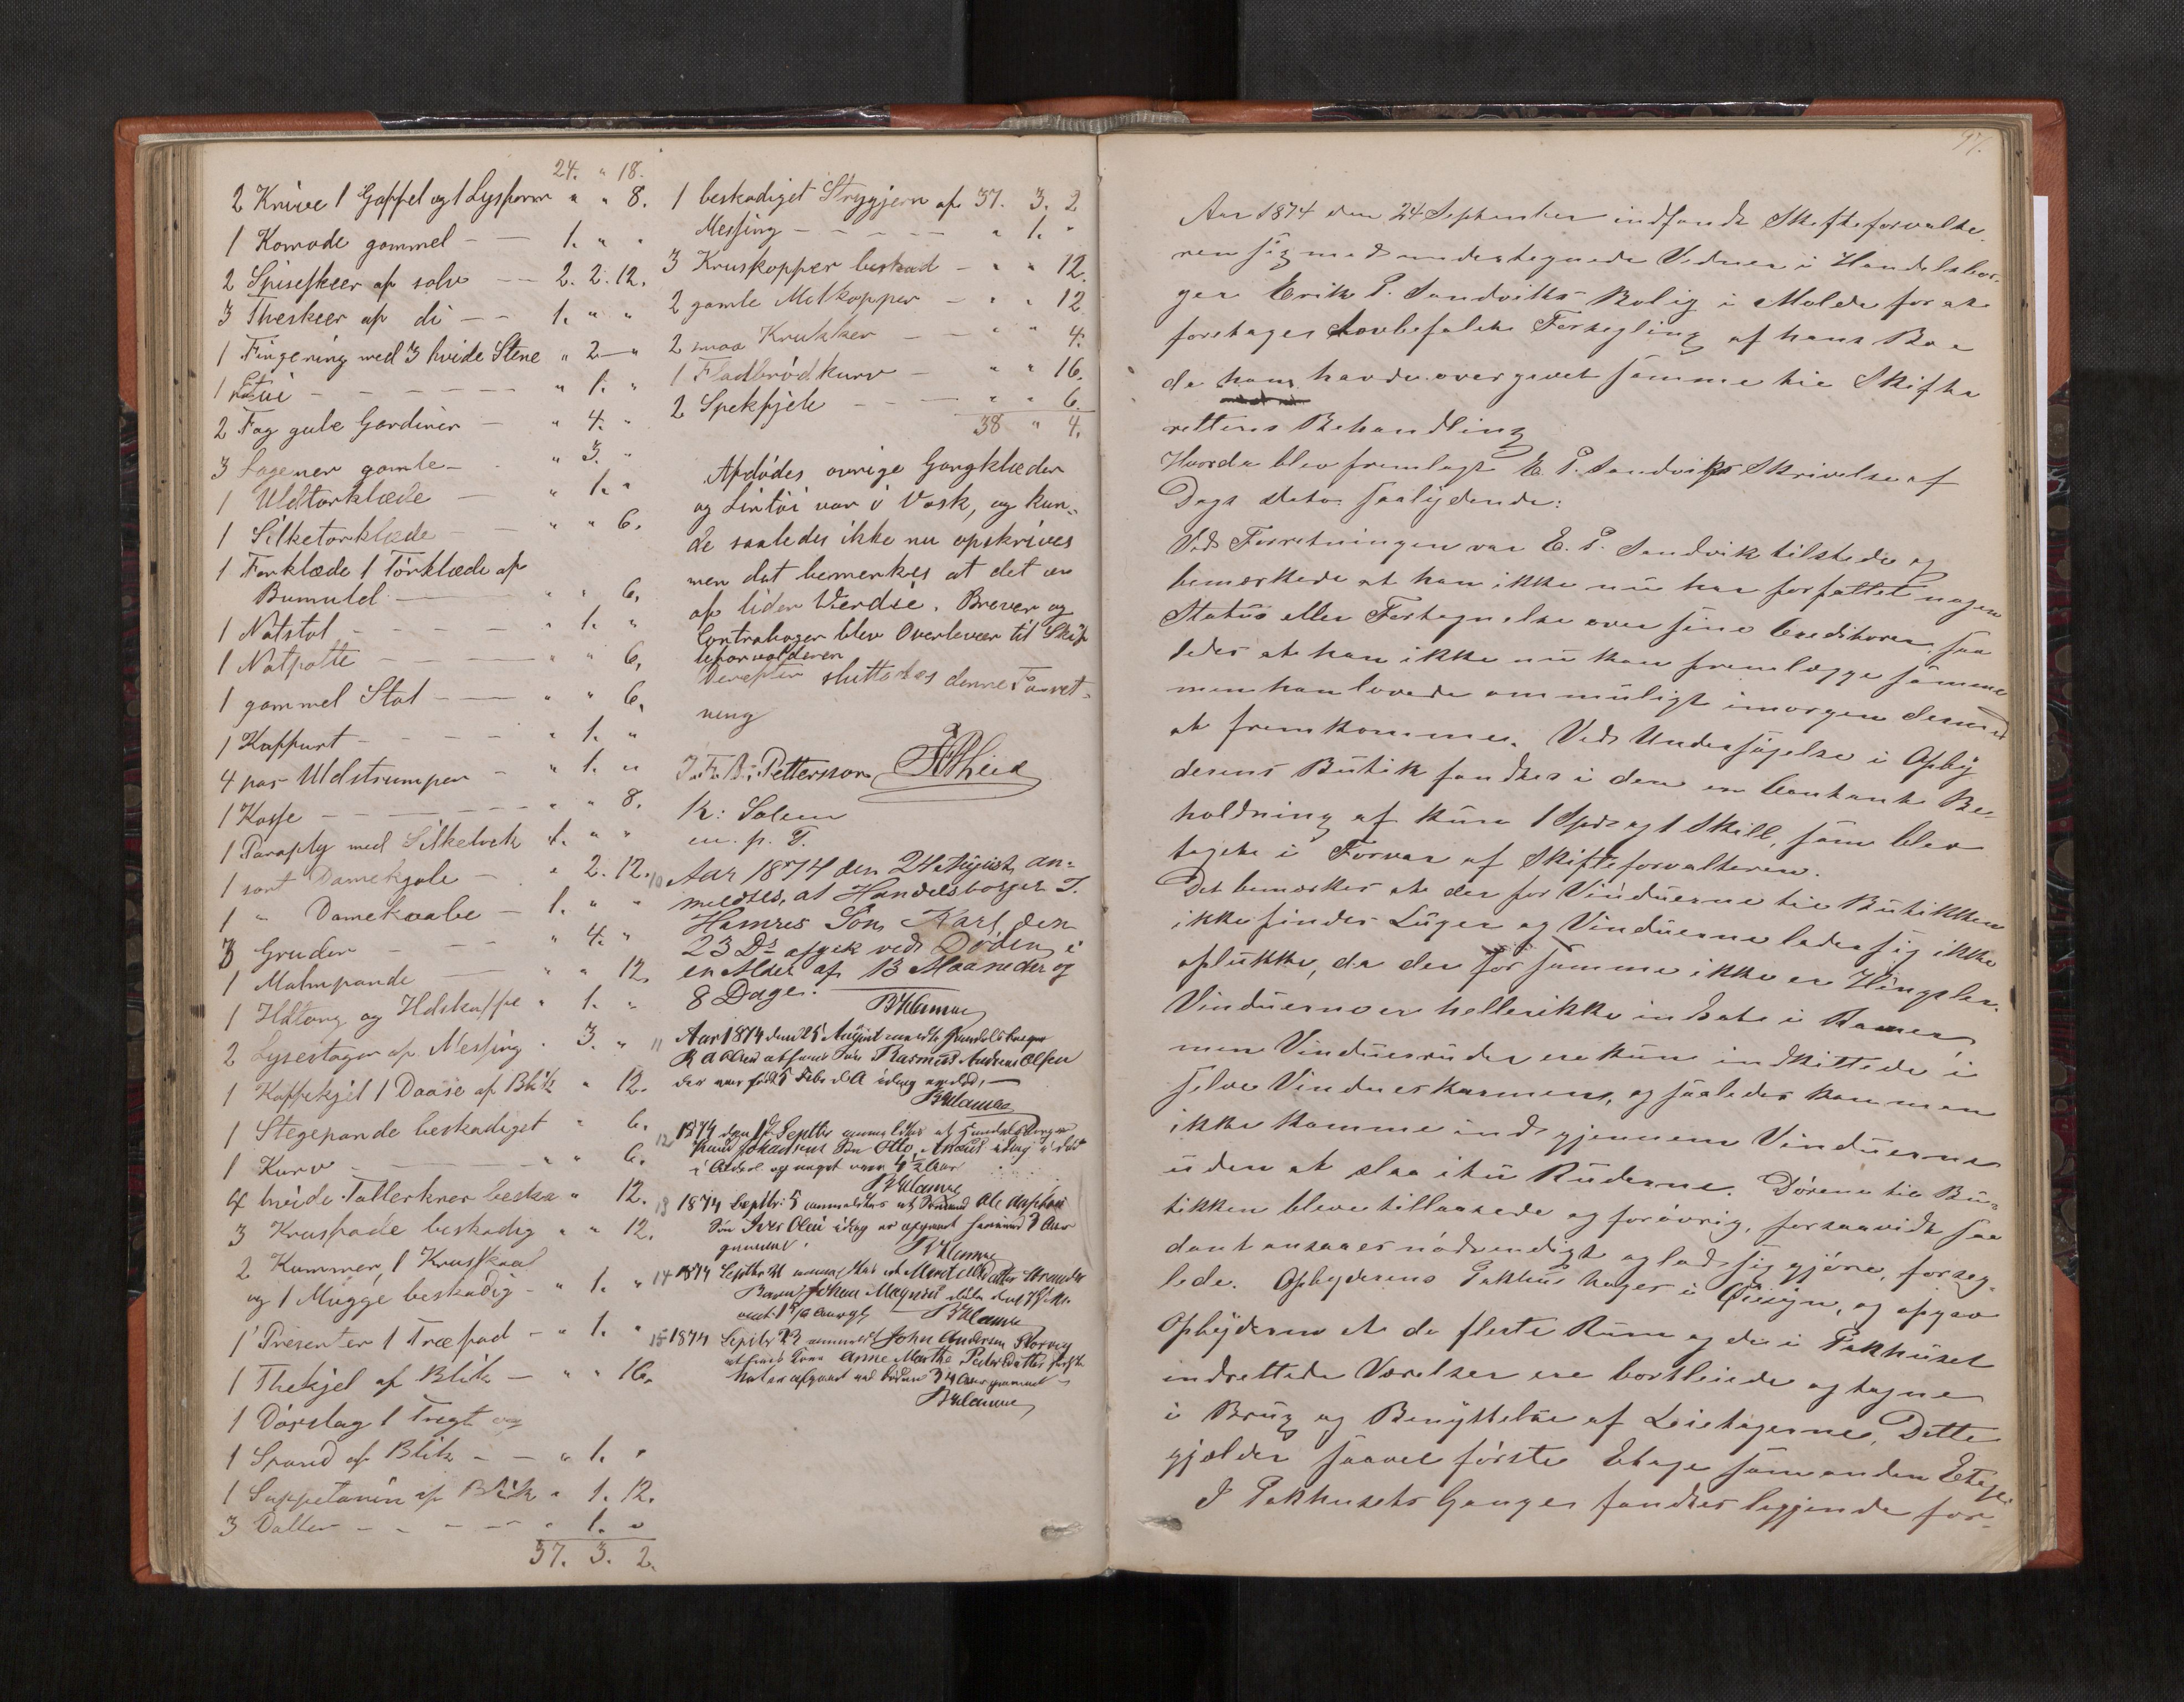 24. " 18.
2 Knive 1 Gaffel og 1 Lysform " " 8.
1 Komode gammel - - 1. " "
2 Spiseskeer af solv - - 2. 2. 12.
3 Theskeer af di - - 1. " "
1 Fingering med 3 hvide Stene " 2 "
1 Etui - - - - " 1. "
2 Fag gule Gardiner - " 4. "
3 Lagener gamle - " 3. "
1 Uldtørklæde - " 1. "
1 Silketorklæde - " " 6.
1 Forklæde 1 Törklæde af
Bumuld - " " 6.
1 Natstol - - - " 1. "
1 Natpotte - - - " " 6.
1 gammel Stol - - " " 6.
1 Kuffurt - - - " 1. "
4 par Uldstrumper - " 1. "
1 Kasse - - - - " " 8.
1 Paraply med Silketræk 1. " "
1 sort Damekjole - " 2. 12.
1 " Damekaabe - 1. " "
3 Gruder - - " 4. "
1 Malmpande - - " " 12.
1 Ildtang og Ildskuffe " 1. "
2 Lysestager af Messing . 3. "
1 Kaffekjel 1 Daase af Blik " 12.
1 Stegepande beskadiget " 6.
1 Kurv - - - " " 6.
4 hvide Tallerkner beska " 12.
3 Krusfade beskadig " " 12.
2 Kummer, 1 Kruskaal
og 1 Mugge beskadig - " 1. "
1 Presenter 1 Træfad - " 1. "
1 Thekjel af Blik - " " 16.
1 Dörslag 1 Tragt og
1 Spand af Blik - - " 1. "
1 Suppeterin af Blik " 1. 12.
3 Daller - - - - " 1. "
37. 3. 2.
1 beskadiget Strygjern af 37. 3. 2
Messing - - - - - " 1. "
3 Kruskopper beskad - " " 12.
2 gamle Melkopper - " " 12
2 smaa Krukker - " " 4.
1 Fladbrödkurv - " " 16.
2 Spekfjele - - - " " 6.
38 " 4.
Afdödes ovrige Gangklæder
og Lintöi var i Vask, og kun-
de saaledes ikke nu opskrives
men det bemerkes at det er
af liden Værdie. Brever og
Contraboger blev Overleveret til Skif
teforvalderen
Derefter sluttedes denne Forret-
ning
J. F. A. Pettersson
K: Solem
m. p. P.
10 Aar 1874 den 24 August, an-
meldtes, at Handelsborger J.
Hamres Sön Karl, den
23 Ds afgik ved Döden i
en Alder af 13 Maaneder og
8 Dage. BHamre
11 Aar 1874 den 25 August anmeldte Handelsborger
R A Olsen at hans Søn Rasmus Andreas Olsen
der var født 5 Febr d A idag er død, -
BHamre
12 1874 den 12 Septbr anmeldtes at Handelsborger
Johansens Søn Otto idag er død
i Alder af noget over 4 1/2 Aar
BHamre
13 1874 Septbr: 5 anmeldtes at Ole
Søn Iver Olai idag er afgaaet 7 Aar
gammel. BHamre
14 1874 Septbr
Johan
BHamre
15 1874 Septbr 23 anmeldt John Andersen Storvig
at hans Kone Anne Marthe Pedersdatter
Nat er afgaaet ved døden 34 Aar gammel -
BHamre
97.
Aar 1874 den 24 September indfandt Skifteforvalte-
ren sig med undertegnede Vidner i Handelsbor-
ger Erik P. Sandviks Bolig i Molde for at
foretages lovbefalet Forsegling af hans Bo
da han havde overgivet samme til Skifte
rettens Behandling
Hvorda blev fremlagt E. P. Sandviks Skrivelse af
Dags Dato: saalydende:
Ved Forretningen var E. P. Sandvik tilstede og
bemærkede at han ikke nu har forfattet nogen
Status eller Fortegnelse over sine Creditorer, saa
ledes at han ikke nu kan fremlægge samme
men han lovede om muligt imorgen dermed
at fremkomme. Ved Undersøgelse i Opby
derens Butik fandtes i den en Contant Be-
holdning af kun 1 Spd og 1 Skill, som blev
tagen i Forvar af Skifteforvalteren.
Det bemærkes at der for Vinduerne til Butikken
ikke findes Luger og Vinduerne lader sig ikke
oplukke, da der for samme ikke er Hengsler.
Vinduerne er heller ikke indsat i Ramer
men Vinduesruder ere kun indkittede i
selve Vindueskarmene, og saaledes kan man
ikke komme ind gjennem Vinduerne
uden at slaa itu Ruderne. Dörene til Bu-
tikken bleve tillaasede og forövrig, forsaavidt saa
dant ansaaes nödvendigt og lod sig gjöre, forseg-
lede. Opbyderens Pakhus toges i Øiesyn, og opgav
Opbyderen at de fleste Rum og de i Pakhuset
indrettede Værelser ere bortleiede og tagne
i Brug og Benyttelse af Leietagerne, Dette
gjælder saavel förste Etage som anden Etage.
I Pakhusets Ganger fandtes liggende for-